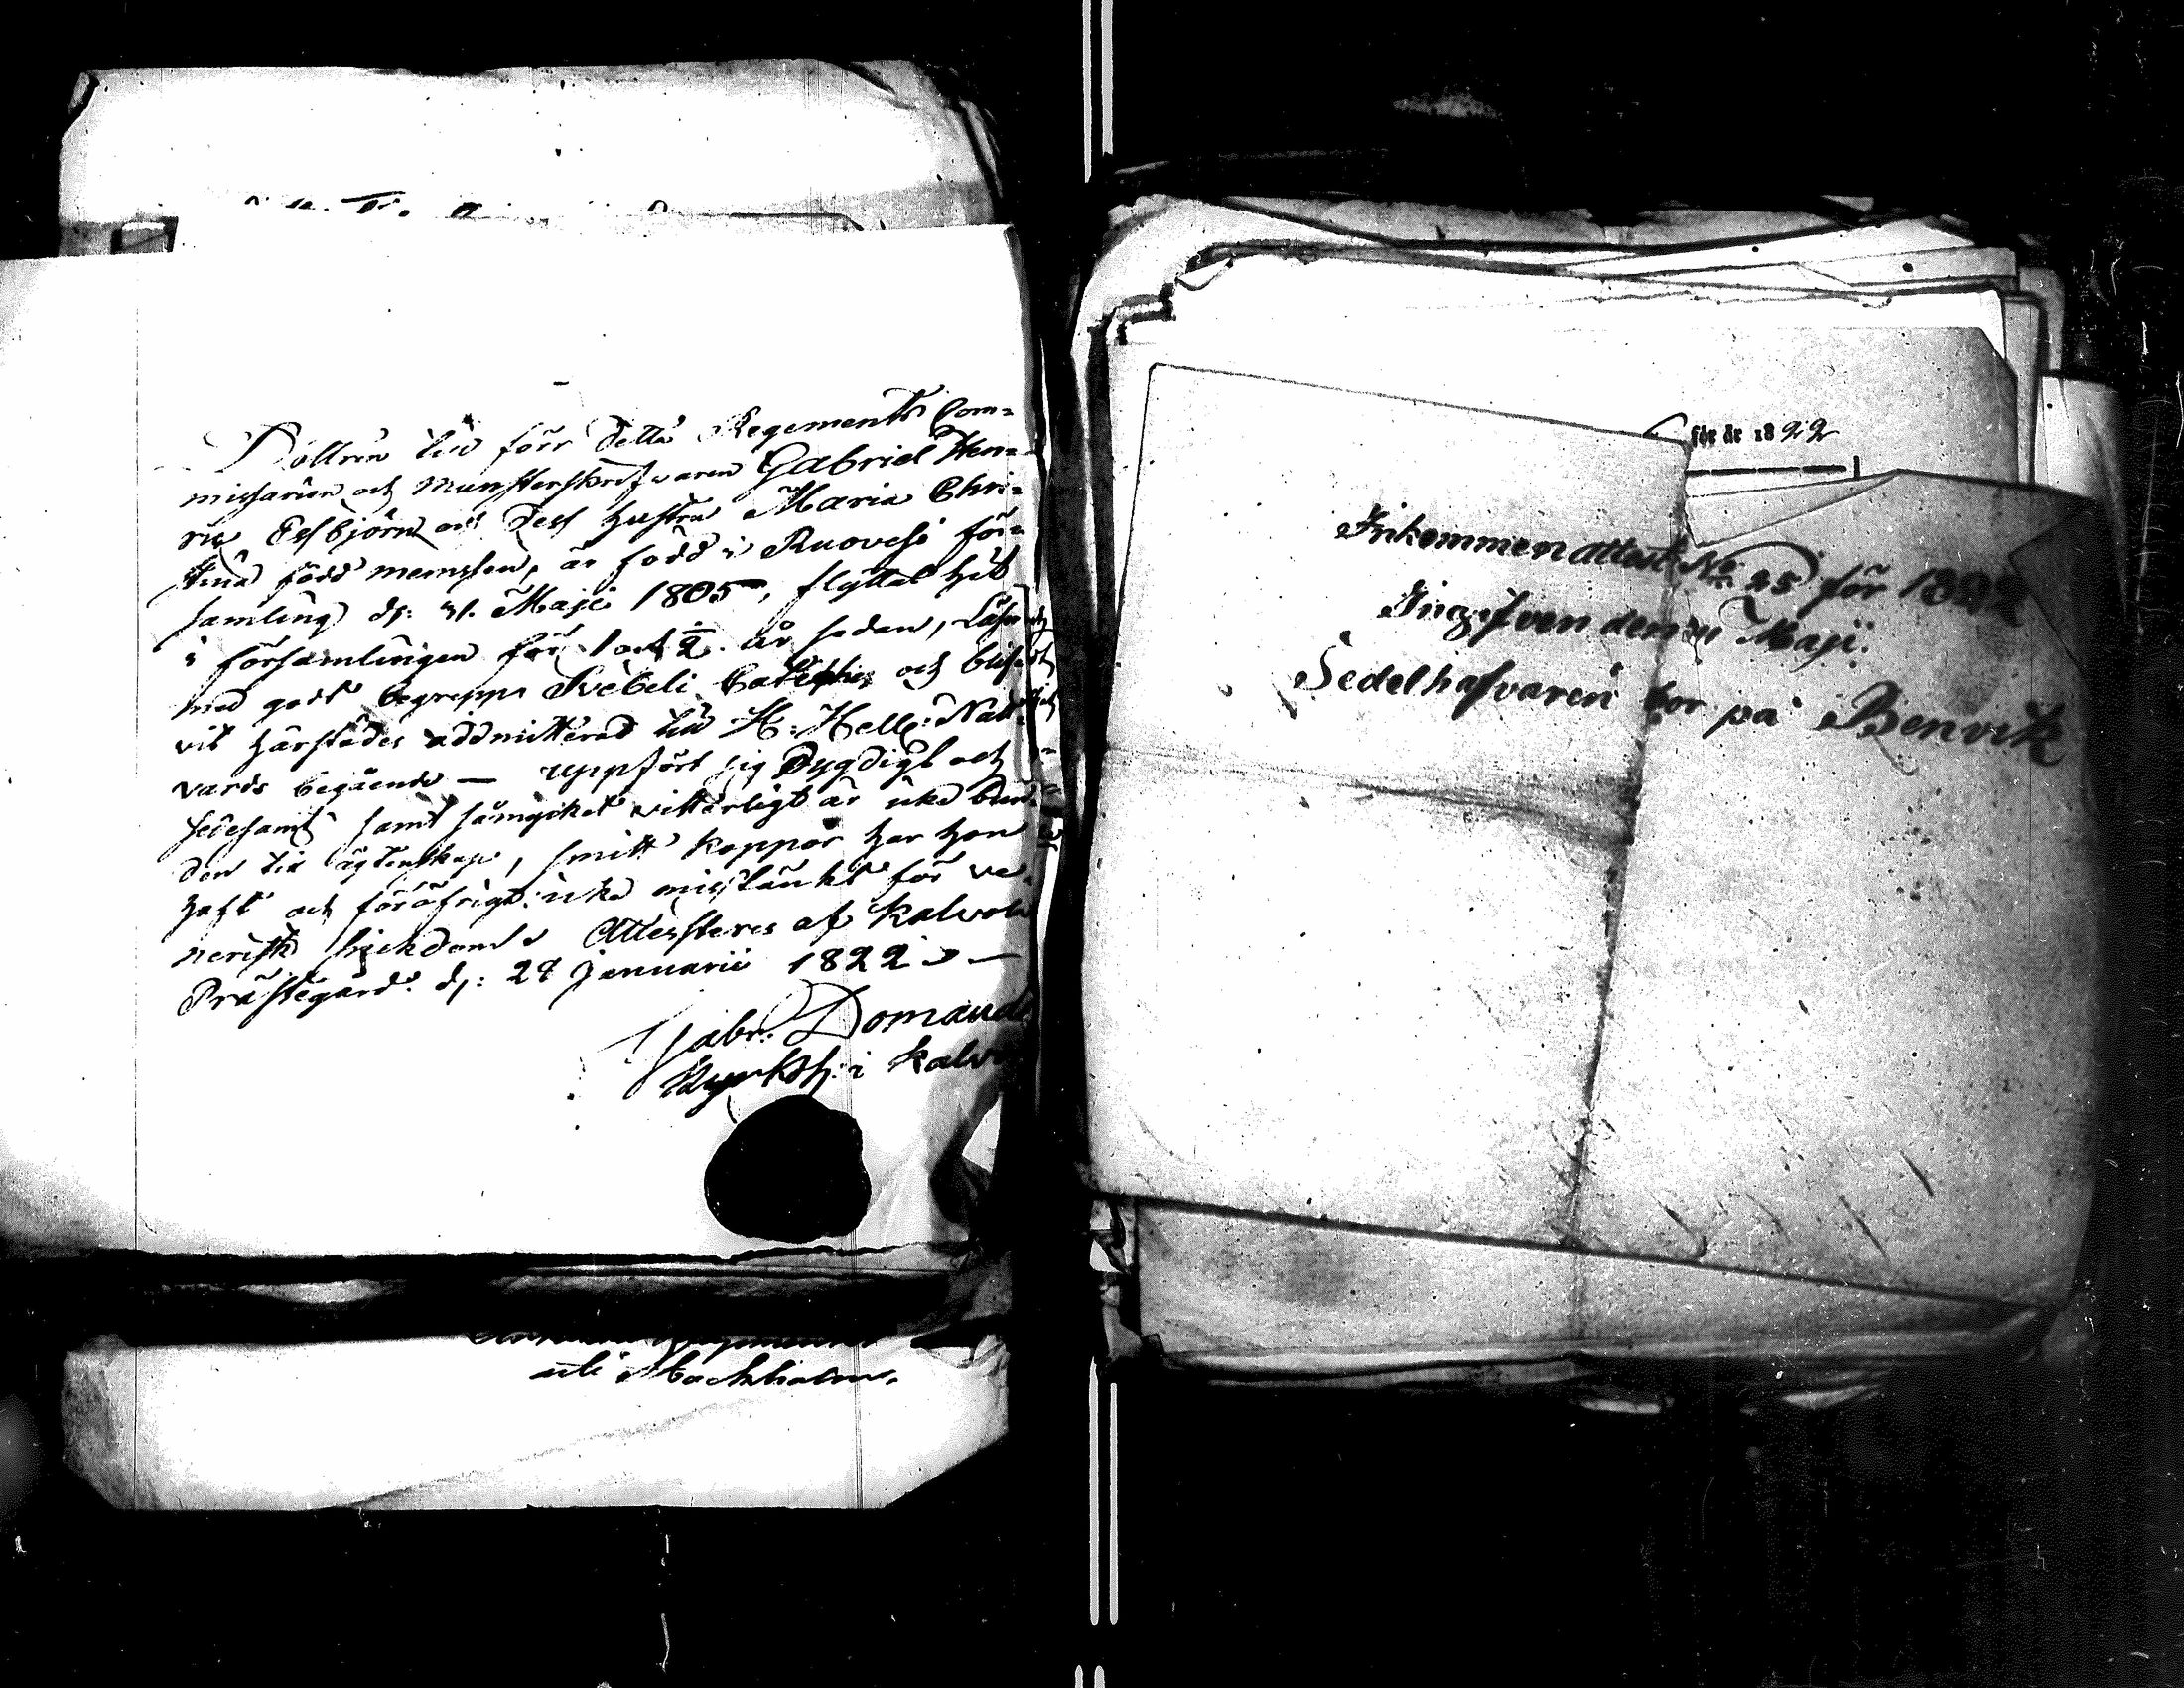 Dottren till förr detta Regements Com=
missarien och Munsterskrifvaren Gabriel Hen=
ric Essbjörn och dess hustru Maria Chri=
stina född memsen, är född i Ruovesi för=
samling d: 31. Maji 1805, flyttat hit
i församlingen för 1 och ½ år sedan, Läser
med godt begrepp Svebeli Cateches och blifvit
vis härstädes admitterad till H: Hell: Natt=
vards begående — uppfört sig Dygdigt och
sedesamt samt såmycket vitterligt är icke bun=
den till ägtenskap, smitt koppor har hon
haft och föröfrigt icke misstänkt för ve=
nerisk sjukdom Attesteres af Kalvola
Prästegård. d: 28 Januarii 1822 —
Gabr. Domand
Kyrkoh: i Kalvo
uti Stockholm.
för år 1822
Inkommen attest No 25 för 1822
Ingifven den 11 Maji.
Sedelhafvaren bor på Benvik